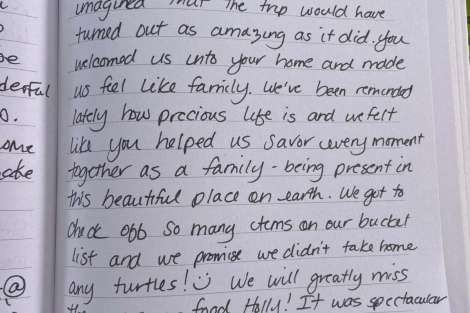 imagined that the trip would have
turned out as amazing as it did. You
welcomed us into your home and made
us feel like family. We've been reminded
lately how precious life is and we felt
like you helped us savor every moment
together as a family - being present in
this beautiful place on earth. We got to
check off so many items on our bucket
list and we promise we didn't take home
any turtles! We will greatly miss
food Holly! It was spectacular